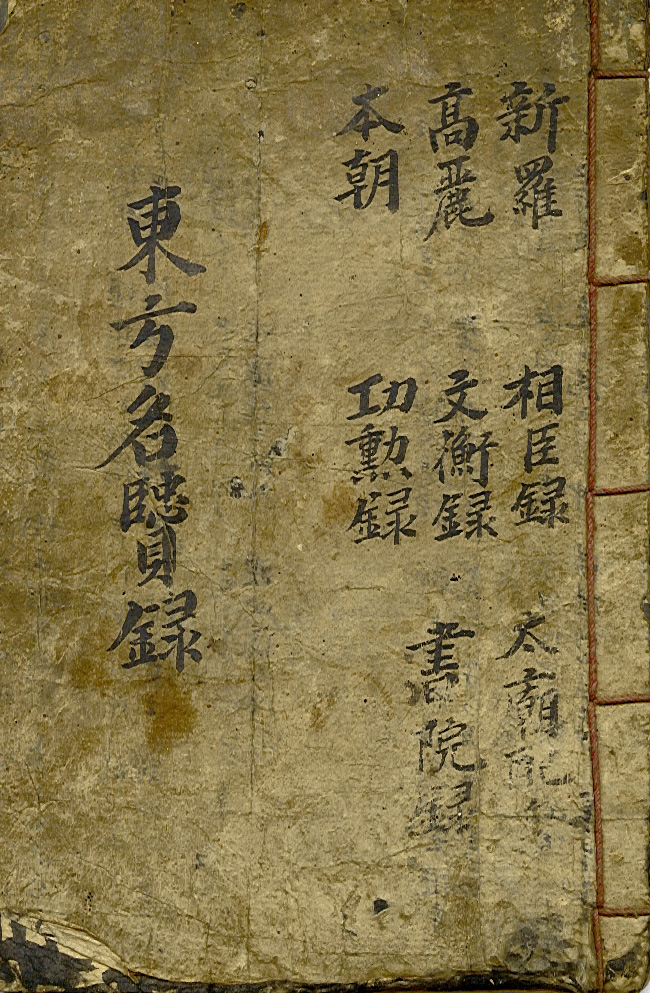 新羅 相臣録 太廟配
高麗 文衡録 書院録
本朝 功勳録
東方名賢録